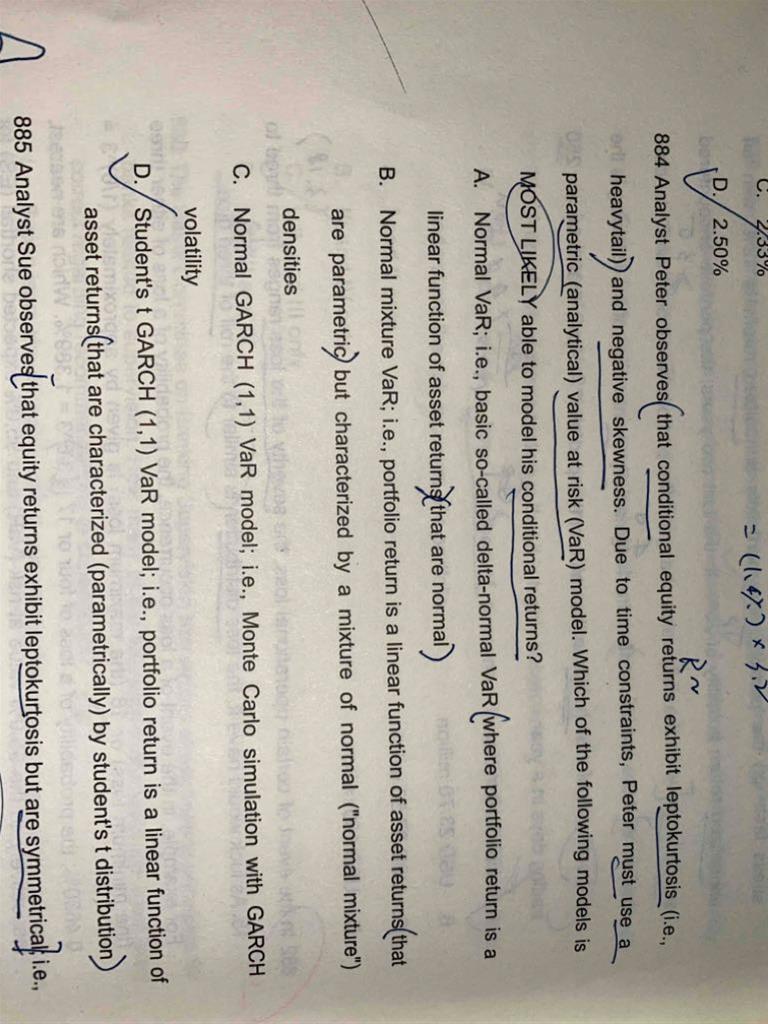 = (1.4%) ×
C. 2.33%
D. 2.50%
884 Analyst Peter observes that conditional equity returns exhibit leptokurtosis (i.e.,
heavytail) and negative skewness. Due to time constraints, Peter must use a
parametric (analytical) value at risk (VaR) model. Which of the following models is
MOST LIKELY able to model his conditional returns?
A. Normal VaR; i.e., basic so-called delta-normal VaR (where portfolio return is a
linear function of asset returns that are normal)
B. Normal mixture VaR; i.e., portfolio return is a linear function of asset returns (that
are parametric) but characterized by a mixture of normal ("normal mixture")
densities
C. Normal GARCH (1,1) VaR model; i.e., Monte Carlo simulation with GARCH
volatility
D. Student's t GARCH (1,1) VaR model; i.e., portfolio return is a linear function of
asset returns (that are characterized (parametrically) by student's t distribution)
885 Analyst Sue observes that equity returns exhibit leptokurtosis but are symmetrical; i.e.,